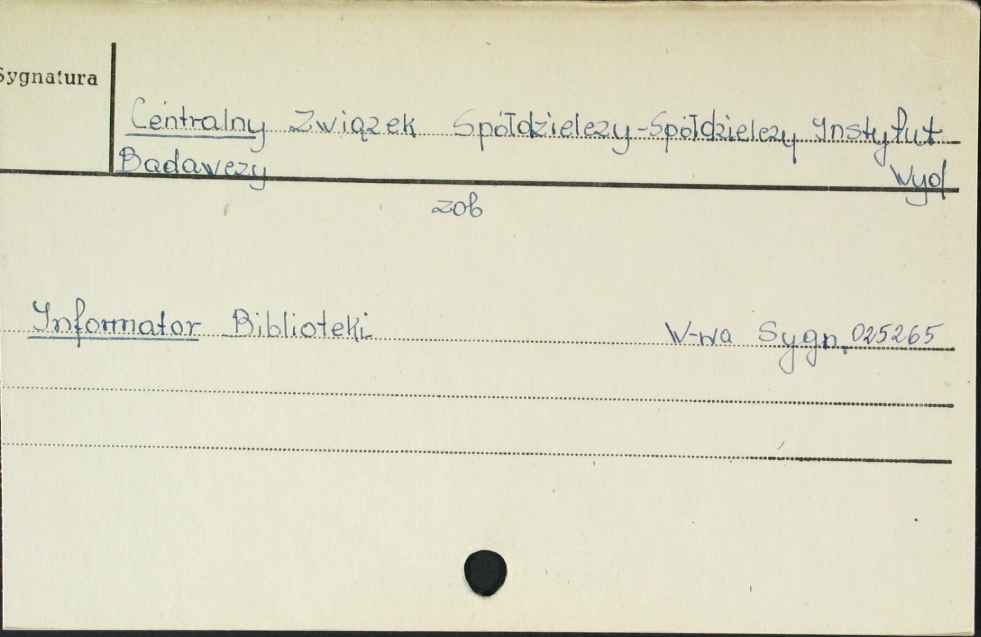 Sygnatura
Centralny Związek Spółdzielczy-Spółdzielczy Instytut
Badawczy Wyd
zob
Informator Biblioteki W-wa Sygn. 025265